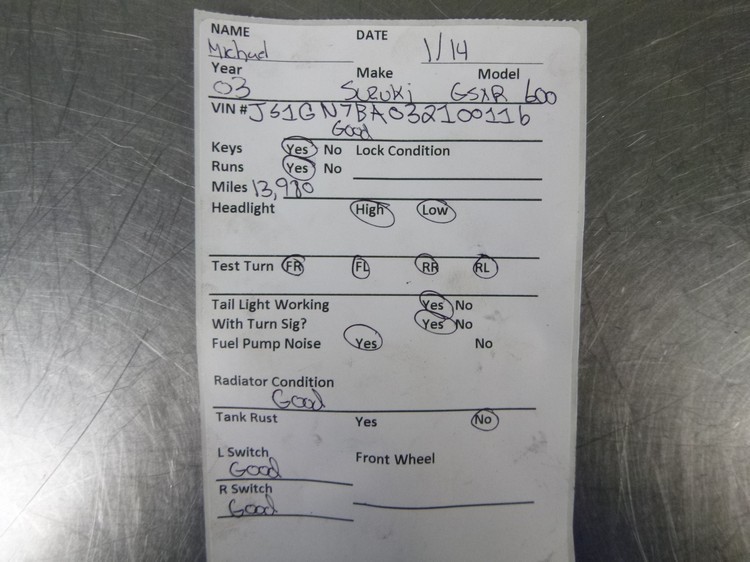 NAME DATE
Michael 1/14
Year Make Model
03 Suzuki GSXR 600
VIN # JS1GN7BA032100116
Good
Keys Yes No Lock Condition
Runs Yes No
Miles 13,980
Headlight High Low
Test Turn FR FL RR RL
Tail Light Working Yes No
With Turn Sig? Yes No
Fuel Pump Noise Yes No
Radiator Condition
Good
Tank Rust Yes No
L Switch Front Wheel
Good
R Switch
Good